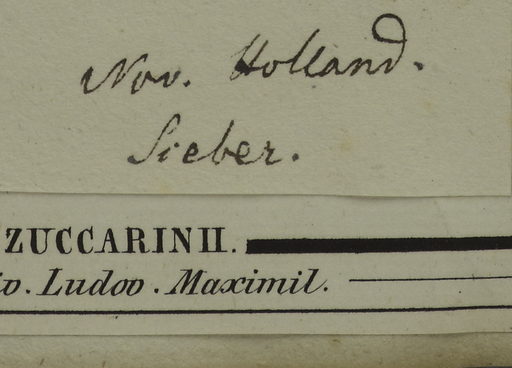 Nov. Holland.
Sieber.
ZUCCARINII.
iv. Ludov. Maximil.